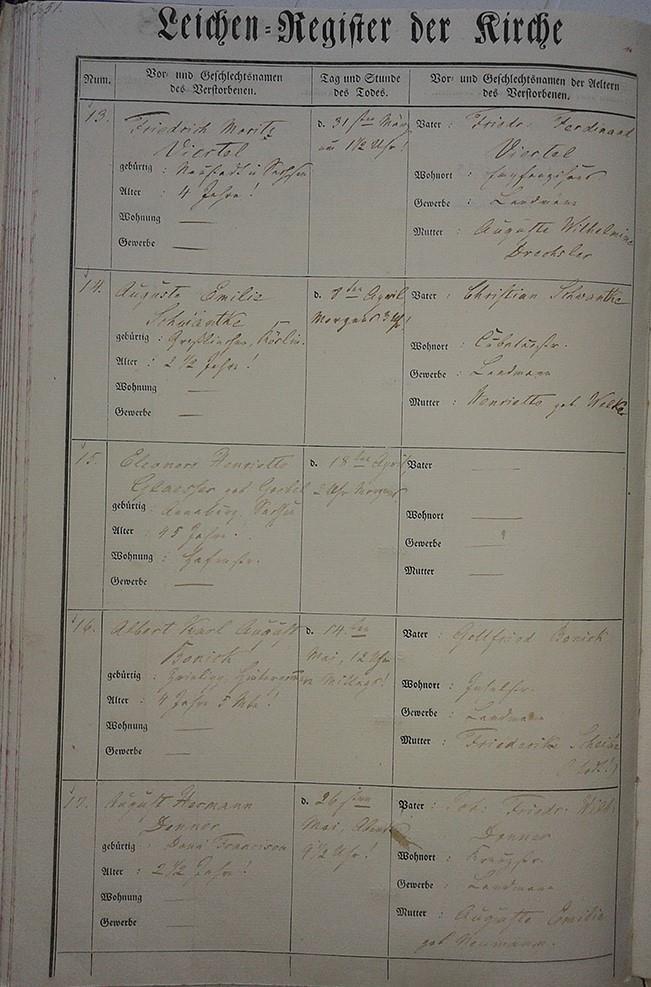 Leichen-Register der Kirche
Num.
Vor- und Geschlechtsnamen
des Verstorbenen.
Tag und Stunde
des Todes.
Vor- und Geschlechtsnamen der Aeltern
des Verstorbenen.
13.
Friedrich Moritz
Viertel
gebürtig :
Alter : 4 Jahre!
Wohnung —
Gewerbe —
d. 31sten März
um 1½ Uhr!
Vater : Friedr. Ferdinand
Viertel
Wohnort :
Gewerbe : Landmann
Mutter : Auguste Wilhelmine
Drechsler
14.
Auguste Emilie
Schwantke
gebürtig :
Alter : 2 ½ Jahre!
Wohnung —
Gewerbe —
d. April
Morgens 3 Uhr!
Vater : Christian Schwantke
Wohnort :
Gewerbe : Landmann
Mutter : Henriette geb.
15.
Eleonore Henriette
Glaesser geb.
gebürtig : Annaberg, Sachsen
Alter : 45 Jahre.
Wohnung : Hafenstr.
Gewerbe —
d. 18ten April
Uhr Morgens
Vater —
Wohnort —
Gewerbe —
Mutter —
16.
Albert Karl August
Bonick
gebürtig :
Alter : 4 Jahre 5 Mte!
Wohnung —
Gewerbe —
d. 14ten
Mai, 12 Uhr
Mittags!
Vater : Gottfried Bonick
Wohnort : Inselstr.
Gewerbe : Landmann
Mutter : Friederike
17.
August Hermann
Donner
gebürtig : Dona Francisca
Alter : 2 ½ Jahre!
Wohnung —
Gewerbe —
d. 26sten
Mai, Abends
9 ½ Uhr!
Vater : Joh. Friedr. Wilh.
Donner
Wohnort : Kreuzstr.
Gewerbe : Landmann
Mutter : Auguste Emilie
geb. Neumann.